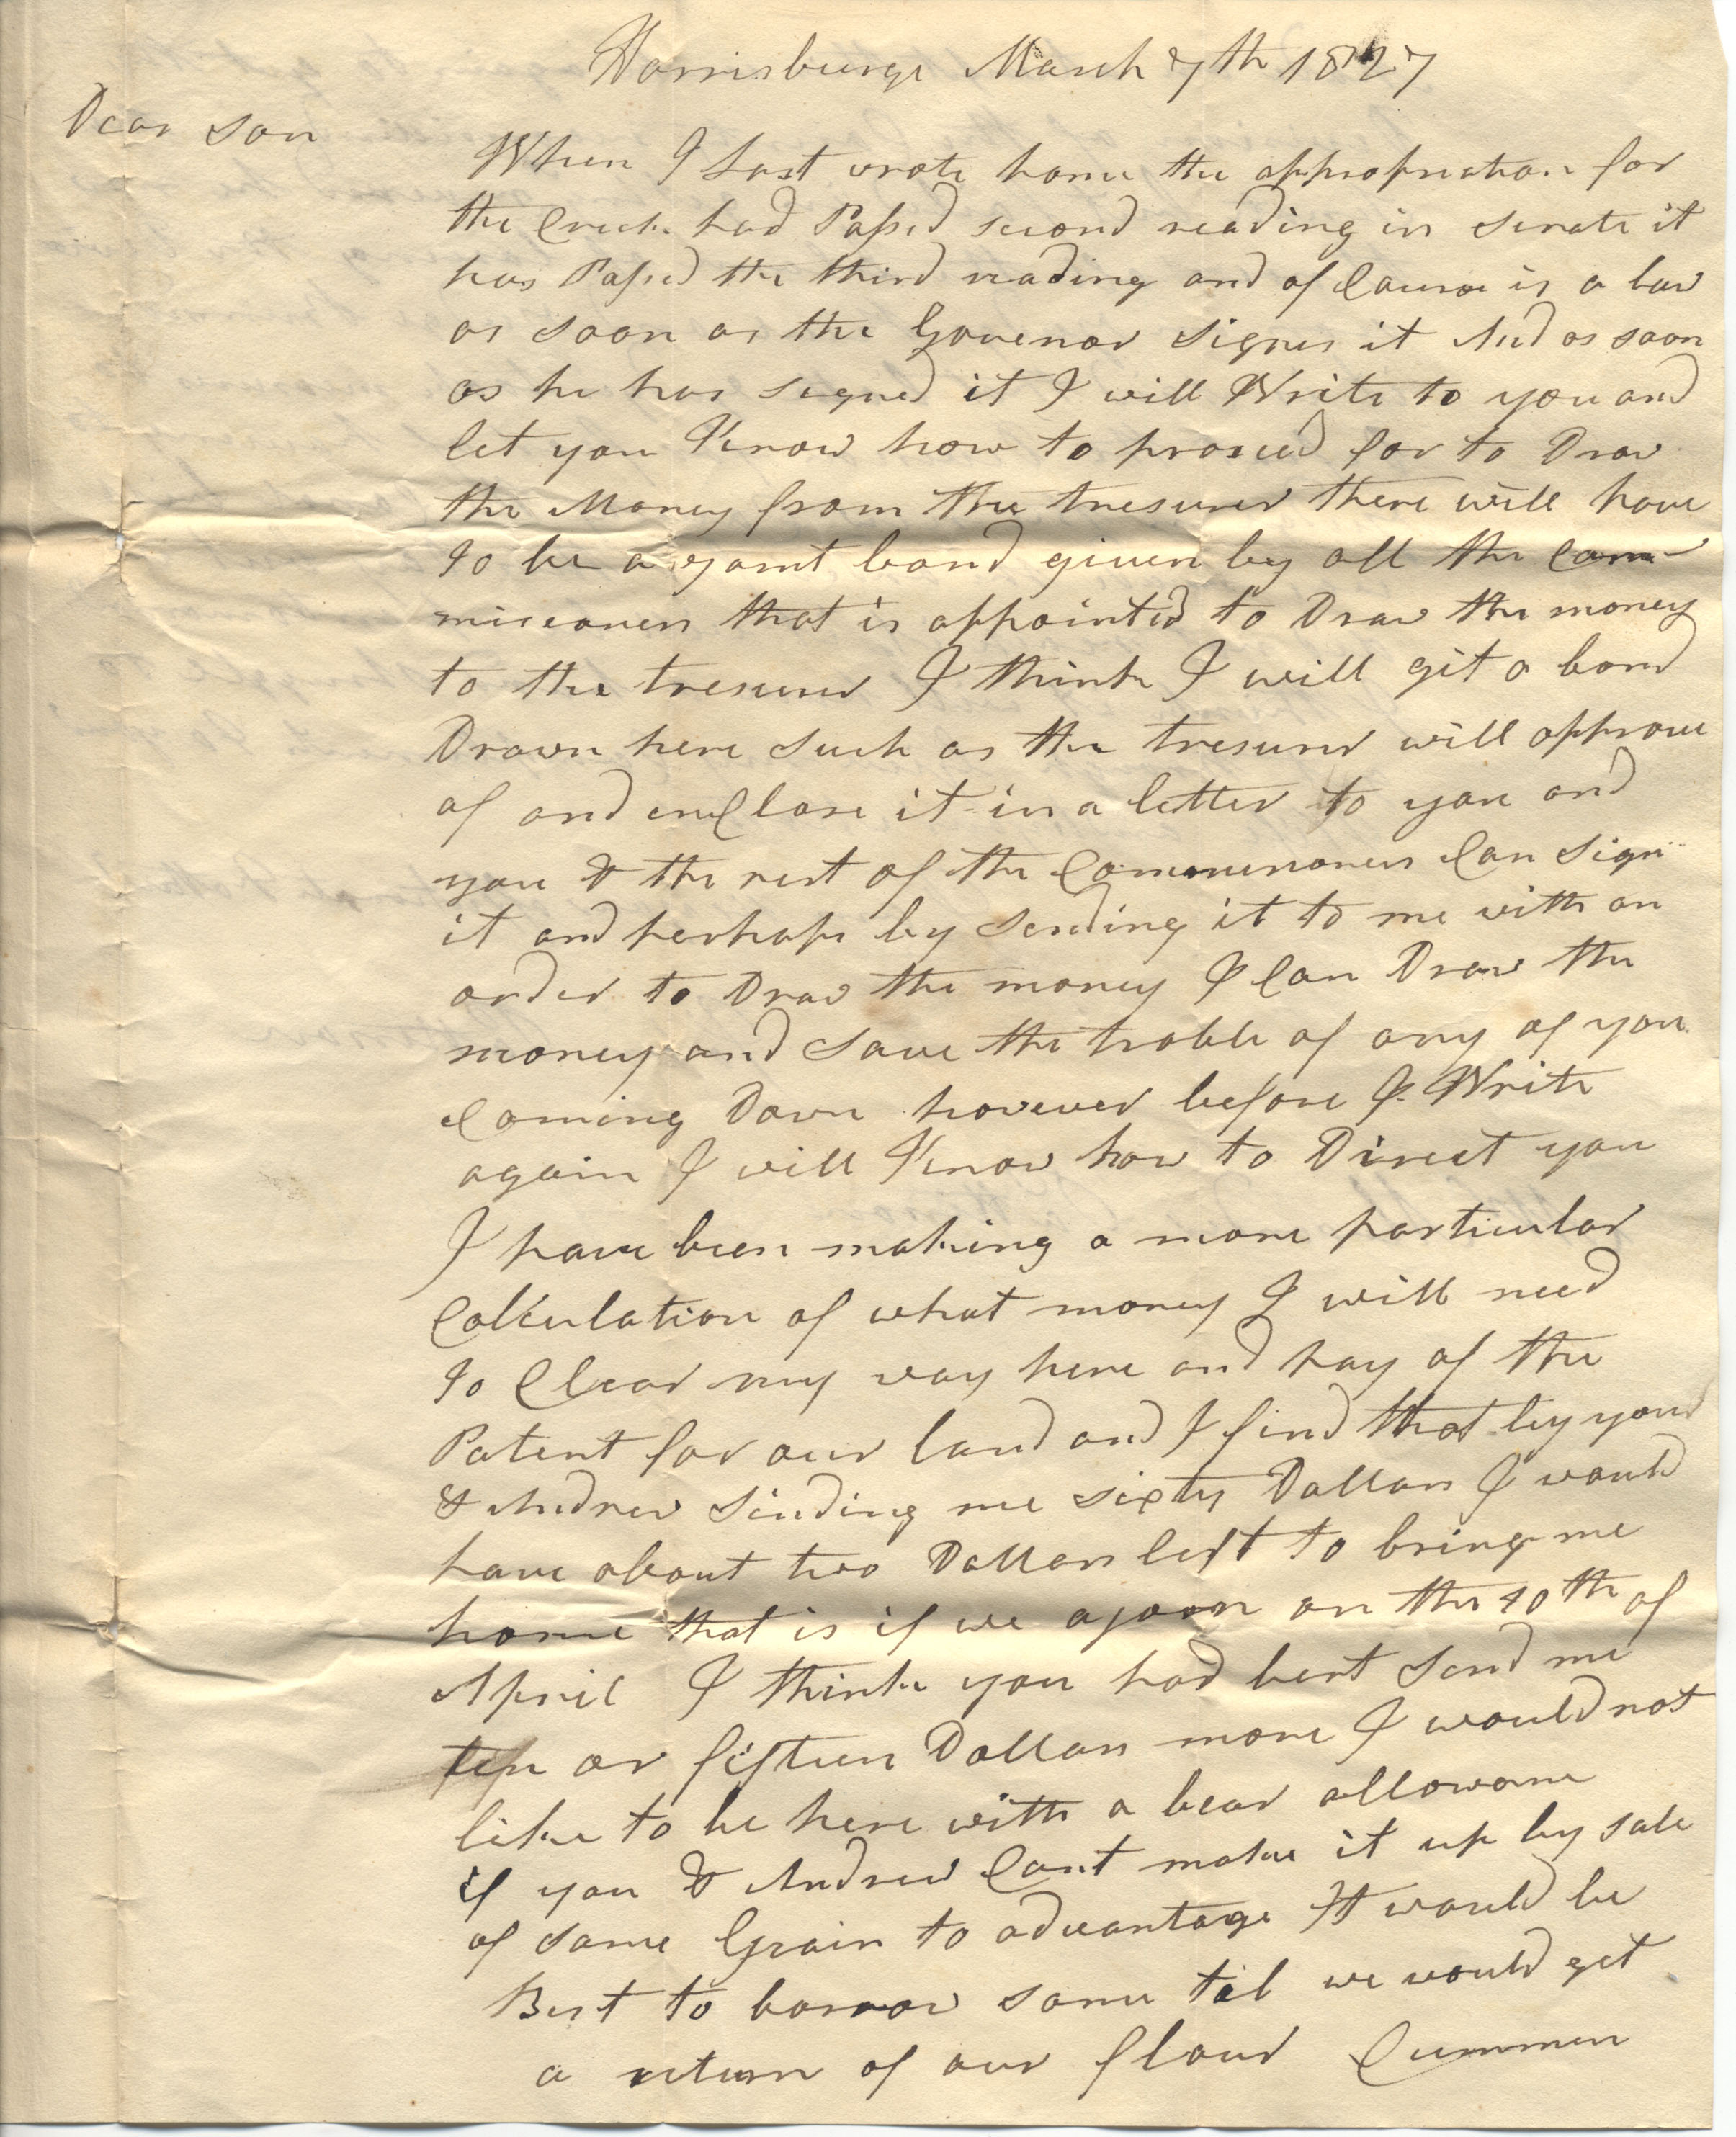 Harrisburge March 7th 1827
Dear Son
When I Last wrote home the appropriation for
the Creek had Passed second reading in Senate it
has Passed the third reading and of Course is a law
as soon as the Govenor Signes it And as soon
as he has signed it I will Write to you and
let you Know how to proseed for to Draw
the Money from the tresurer there will have
to be a yoint bond given by all the Com-
miseoners that is appointed to Draw the money
to the tresurer I think I will git a bond
Drawn here Such as the tresurer will approve
of and enClose it in a letter to you and
you & the rest of the Commisioners Can Sign
it and perhaps by Sending it to me with an
order to Draw the money I Can Draw the
money and Save the troble of any of you
Coming Down however before I Write
again I will Know how to Direct you
I have been making a more particular
Calkulation of what money I will need
to Clear my way here and pay of the
Patent for our land and I find that by your
& Andrew Sending me sixty Dollars I would
have about two Dollars left to bring me
home that is if we ajoorn on the 10th of
April I think you had best Send me
ten or fifteen Dollars more I would not
like to be here with a bear allowance
if you & Andrew Cant make it up by sale
of some Grain to advantage It would be
Best to borrow some til we would get
a return of our flour Cummen